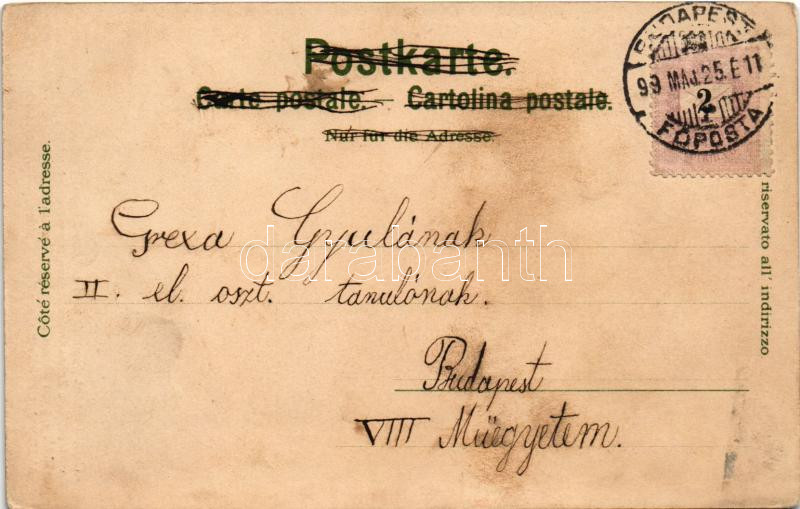 Postkarte.
Carte postale. – Cartolina postale.
Nur für die Adresse.
BUDAPEST
99 MÁJ. 25. E 11
FŐPOSTA
2
Côté réservé à l'adresse.
riservato all' indirizzo
Grexa Gyulának
II. el. oszt. tanulónak.
Budapest
VIII Müegyetem.
darabanth